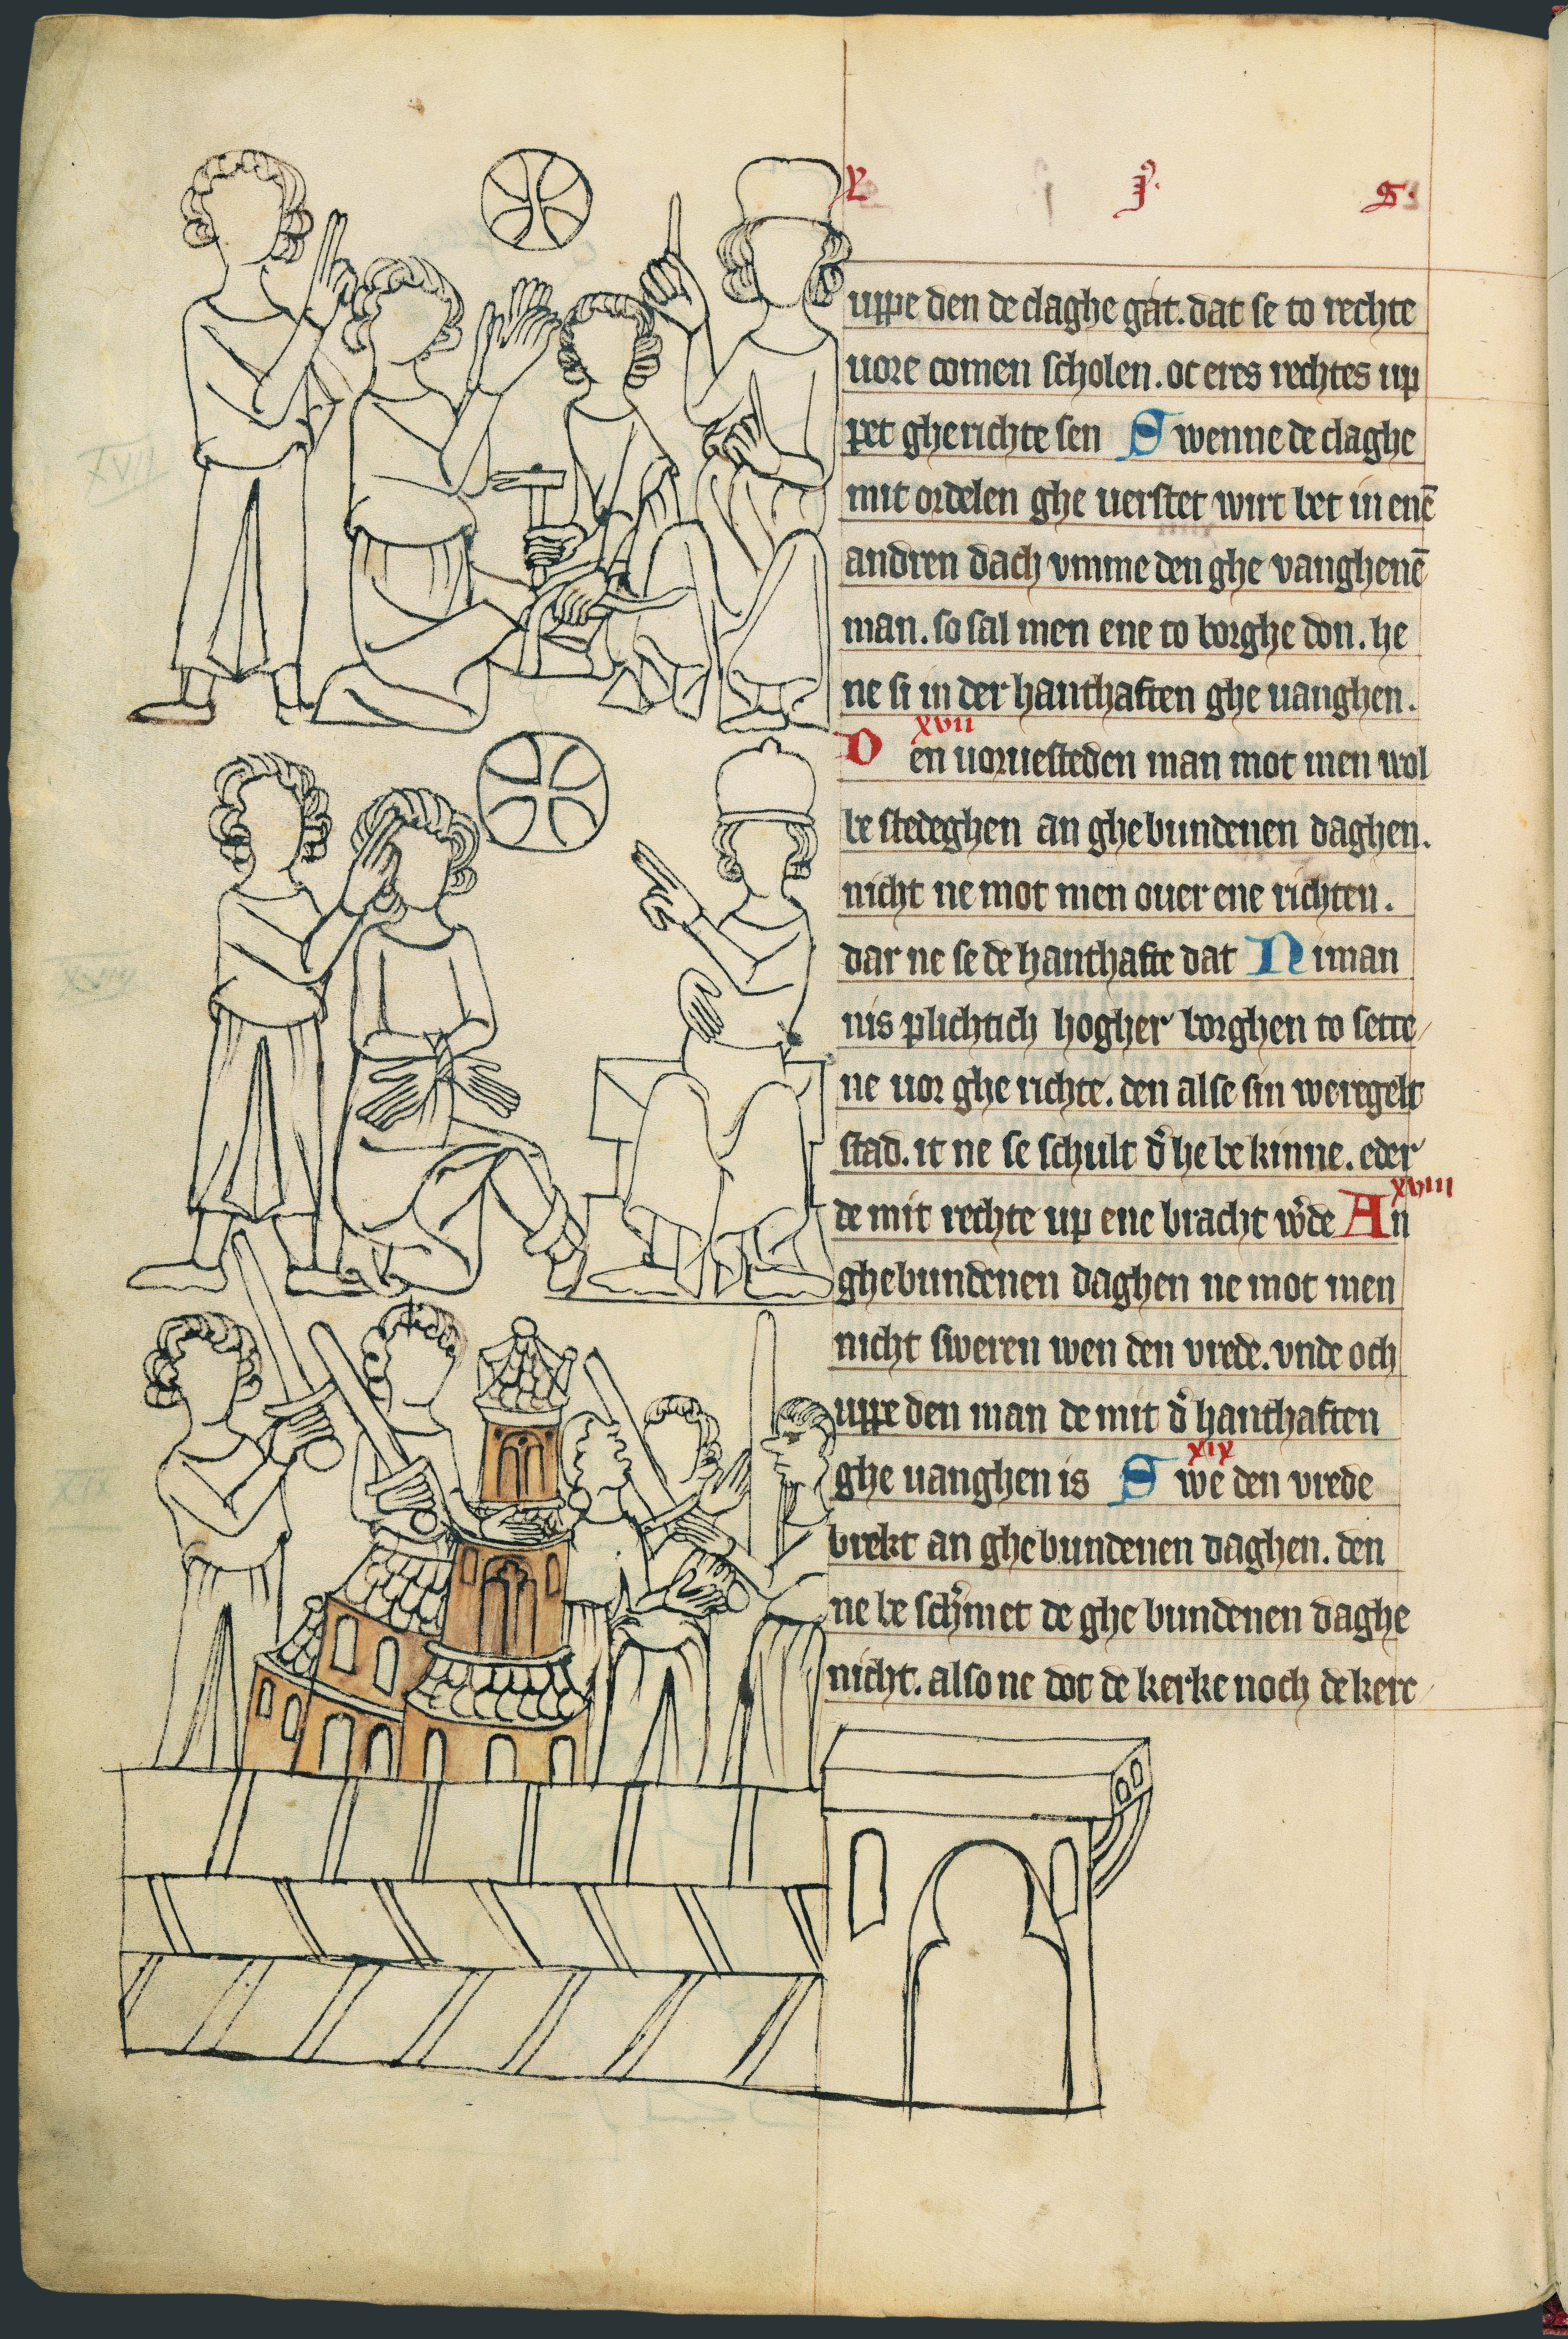 L J S
uppe den de claghe gat. dat se to rechte
uore comen scholen. oc eres rechtes up
pet gherichte sen Swenne de claghe
mit ordelen ghe uerstet wirt bet in enē
andren dach vmme den ghe vanghenē
man. so sal men ene to borghe don. he
ne si in der hanthaften ghe uanghen.
xvii
Den uoruesteden man mot men wol
be stedeghen an ghebundenen daghen.
nicht ne mot men ouer ene richten.
dar ne se de hanthafte dat Niman
nis plichtich hogher borghen to sette/
ne uor ghe richte. den alse sin weregelt
stad. it ne se schult d' he be kinne. eder
xviii
de mit rechte up ene bracht w'de An
ghebundenen daghen ne mot men
nicht sweren wen den vrede. vnde och
uppe den man de mit d' hanthaften
xix
ghe uanghen is Swe den vrede
brekt an ghebundenen daghen. den
ne be sch'met de ghe bundenen daghe
nicht. also ne dot de kerke noch de kerc/
XVII
XVIII
XIX